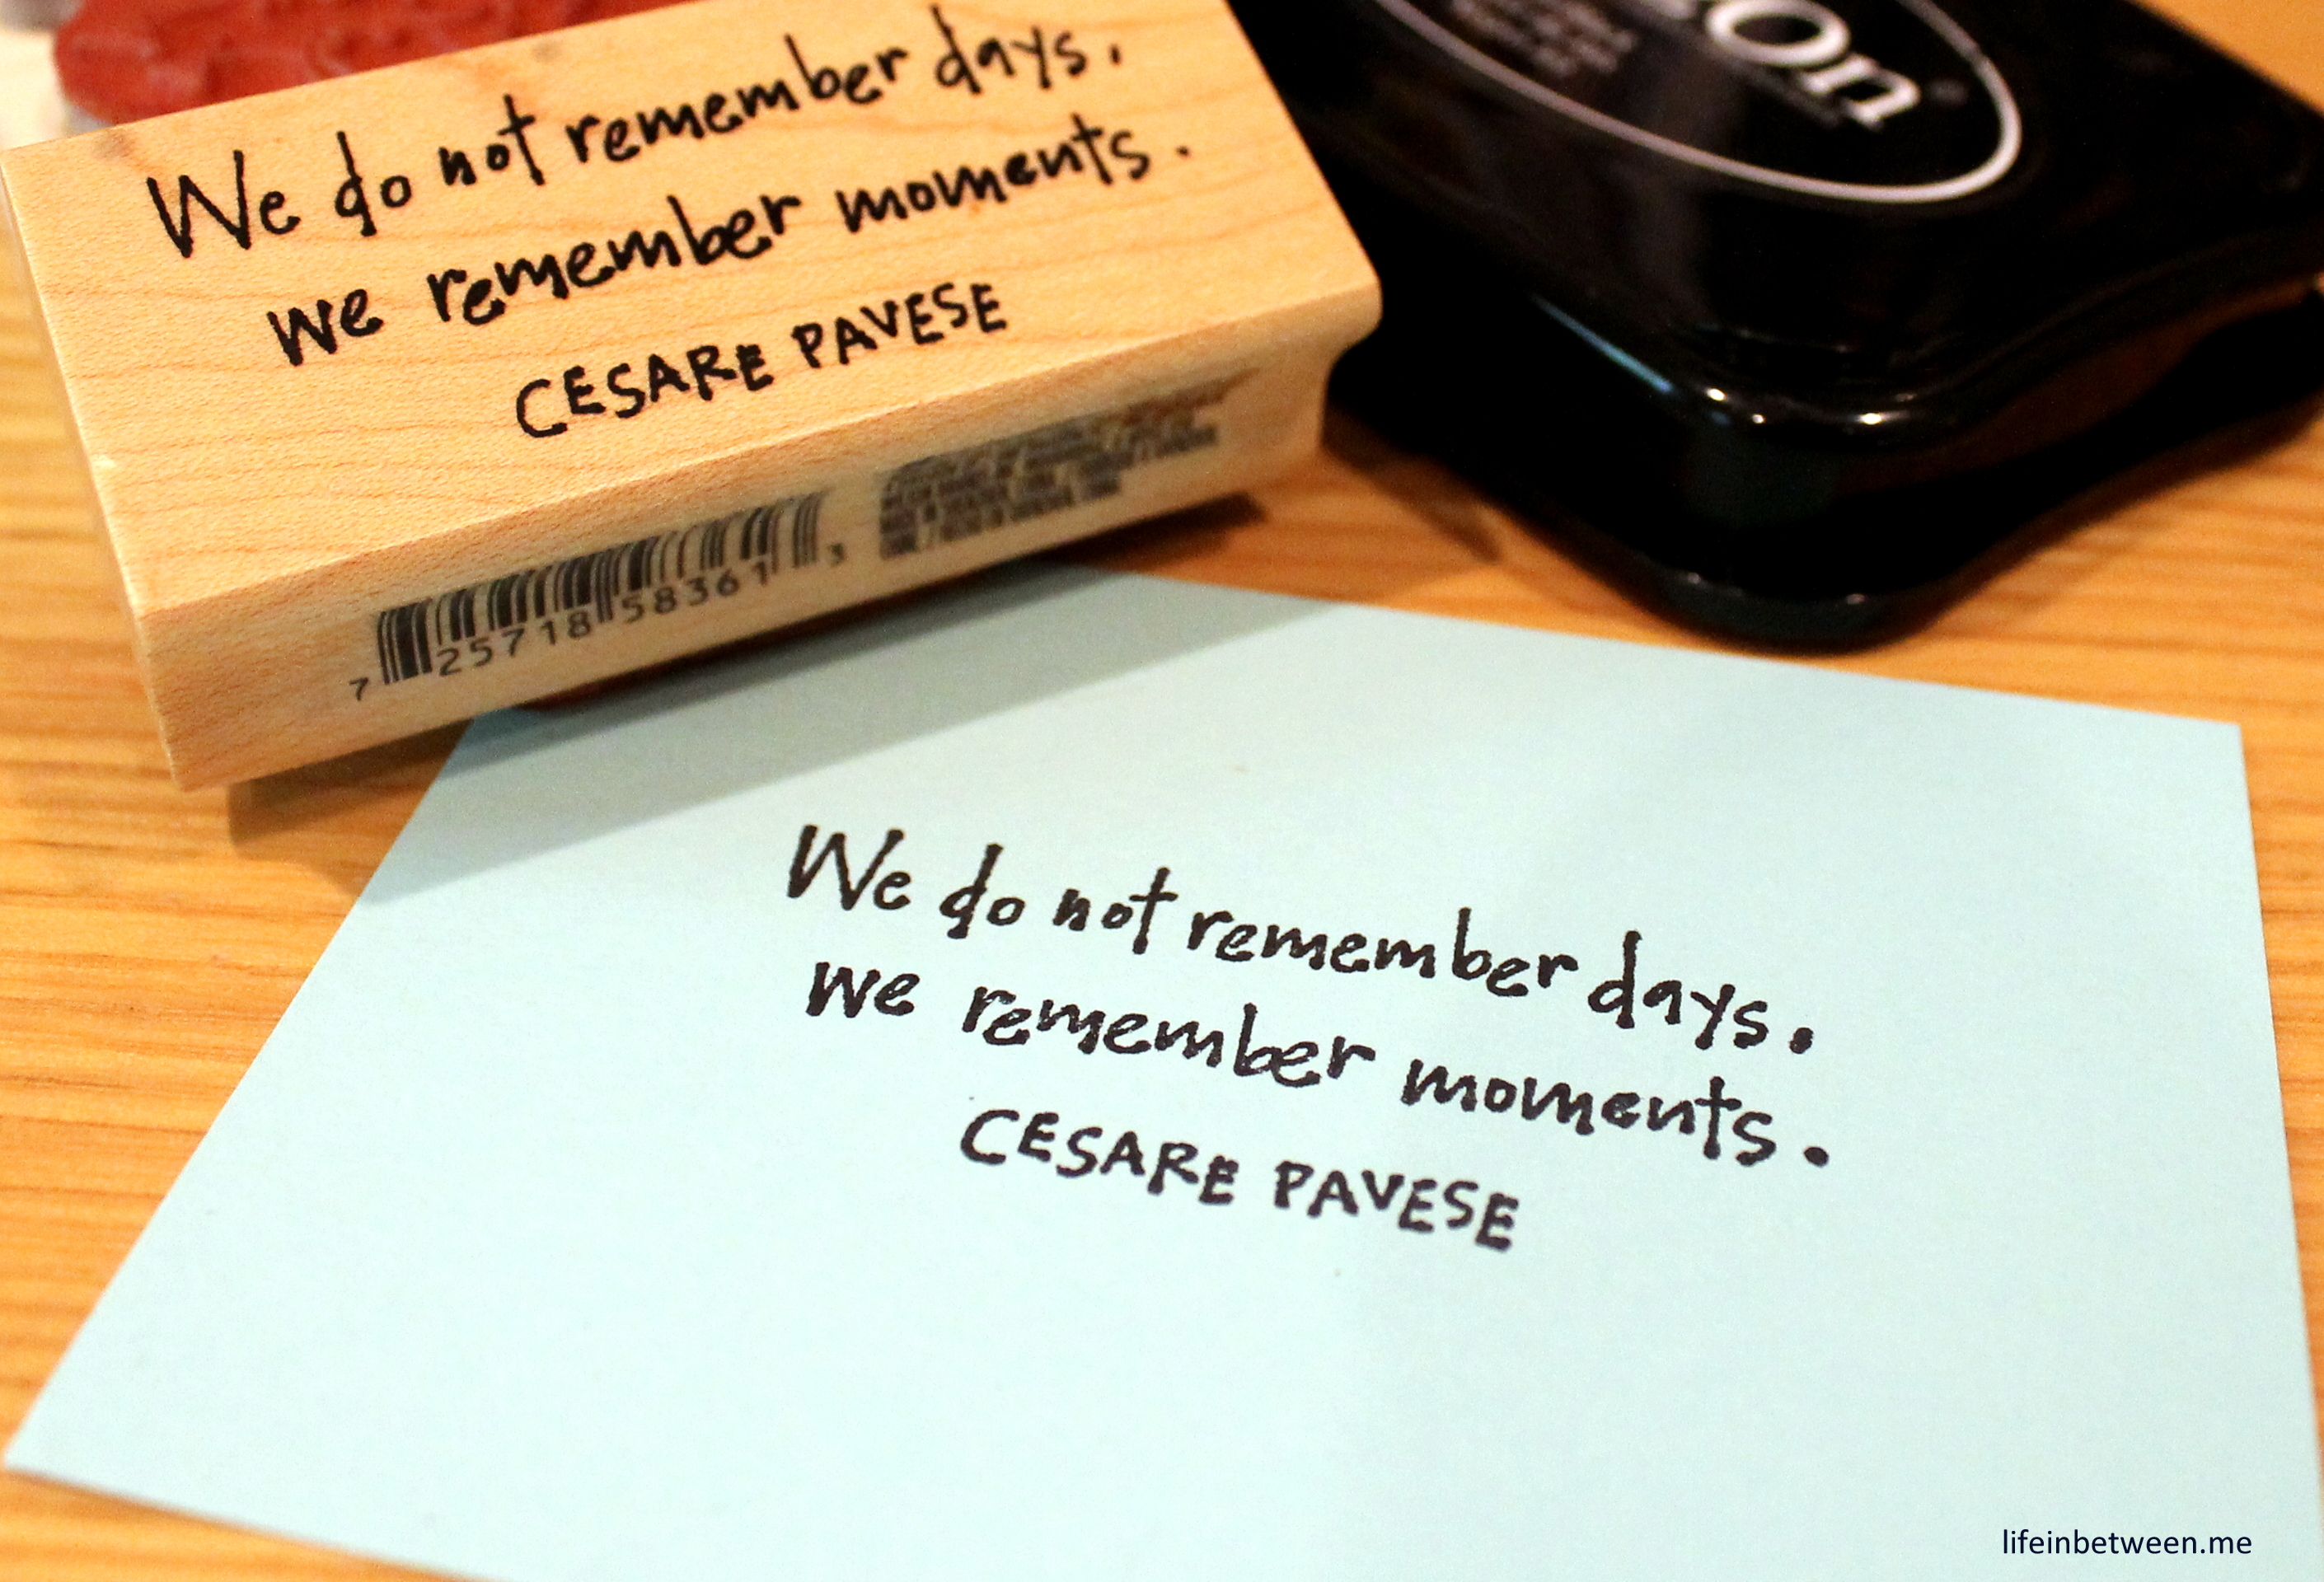 We do not remember days.
we remember moments.
CESARE PAVESE
7 25718 58361 3
on
We do not remember days.
we remember moments.
CESARE PAVESE
lifeinbetween.me